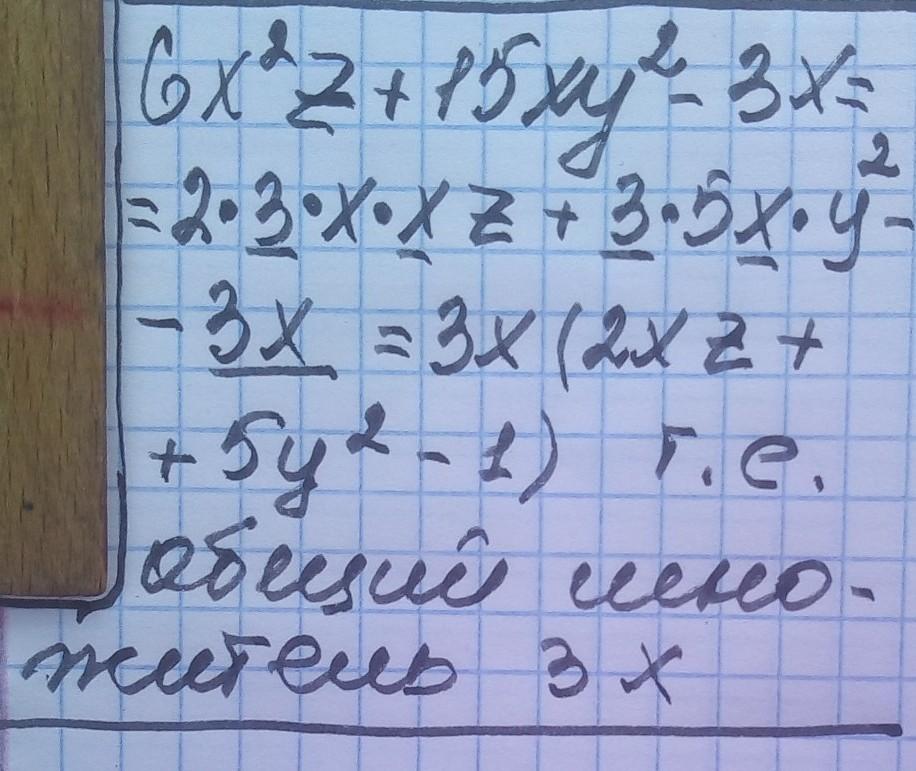 6x²z + 15xy² - 3x =
= 2·3·x·x z + 3·5x·y² -
- 3x = 3x (2x z +
+ 5y² - 1) т.е.
общий мно-
житель 3x